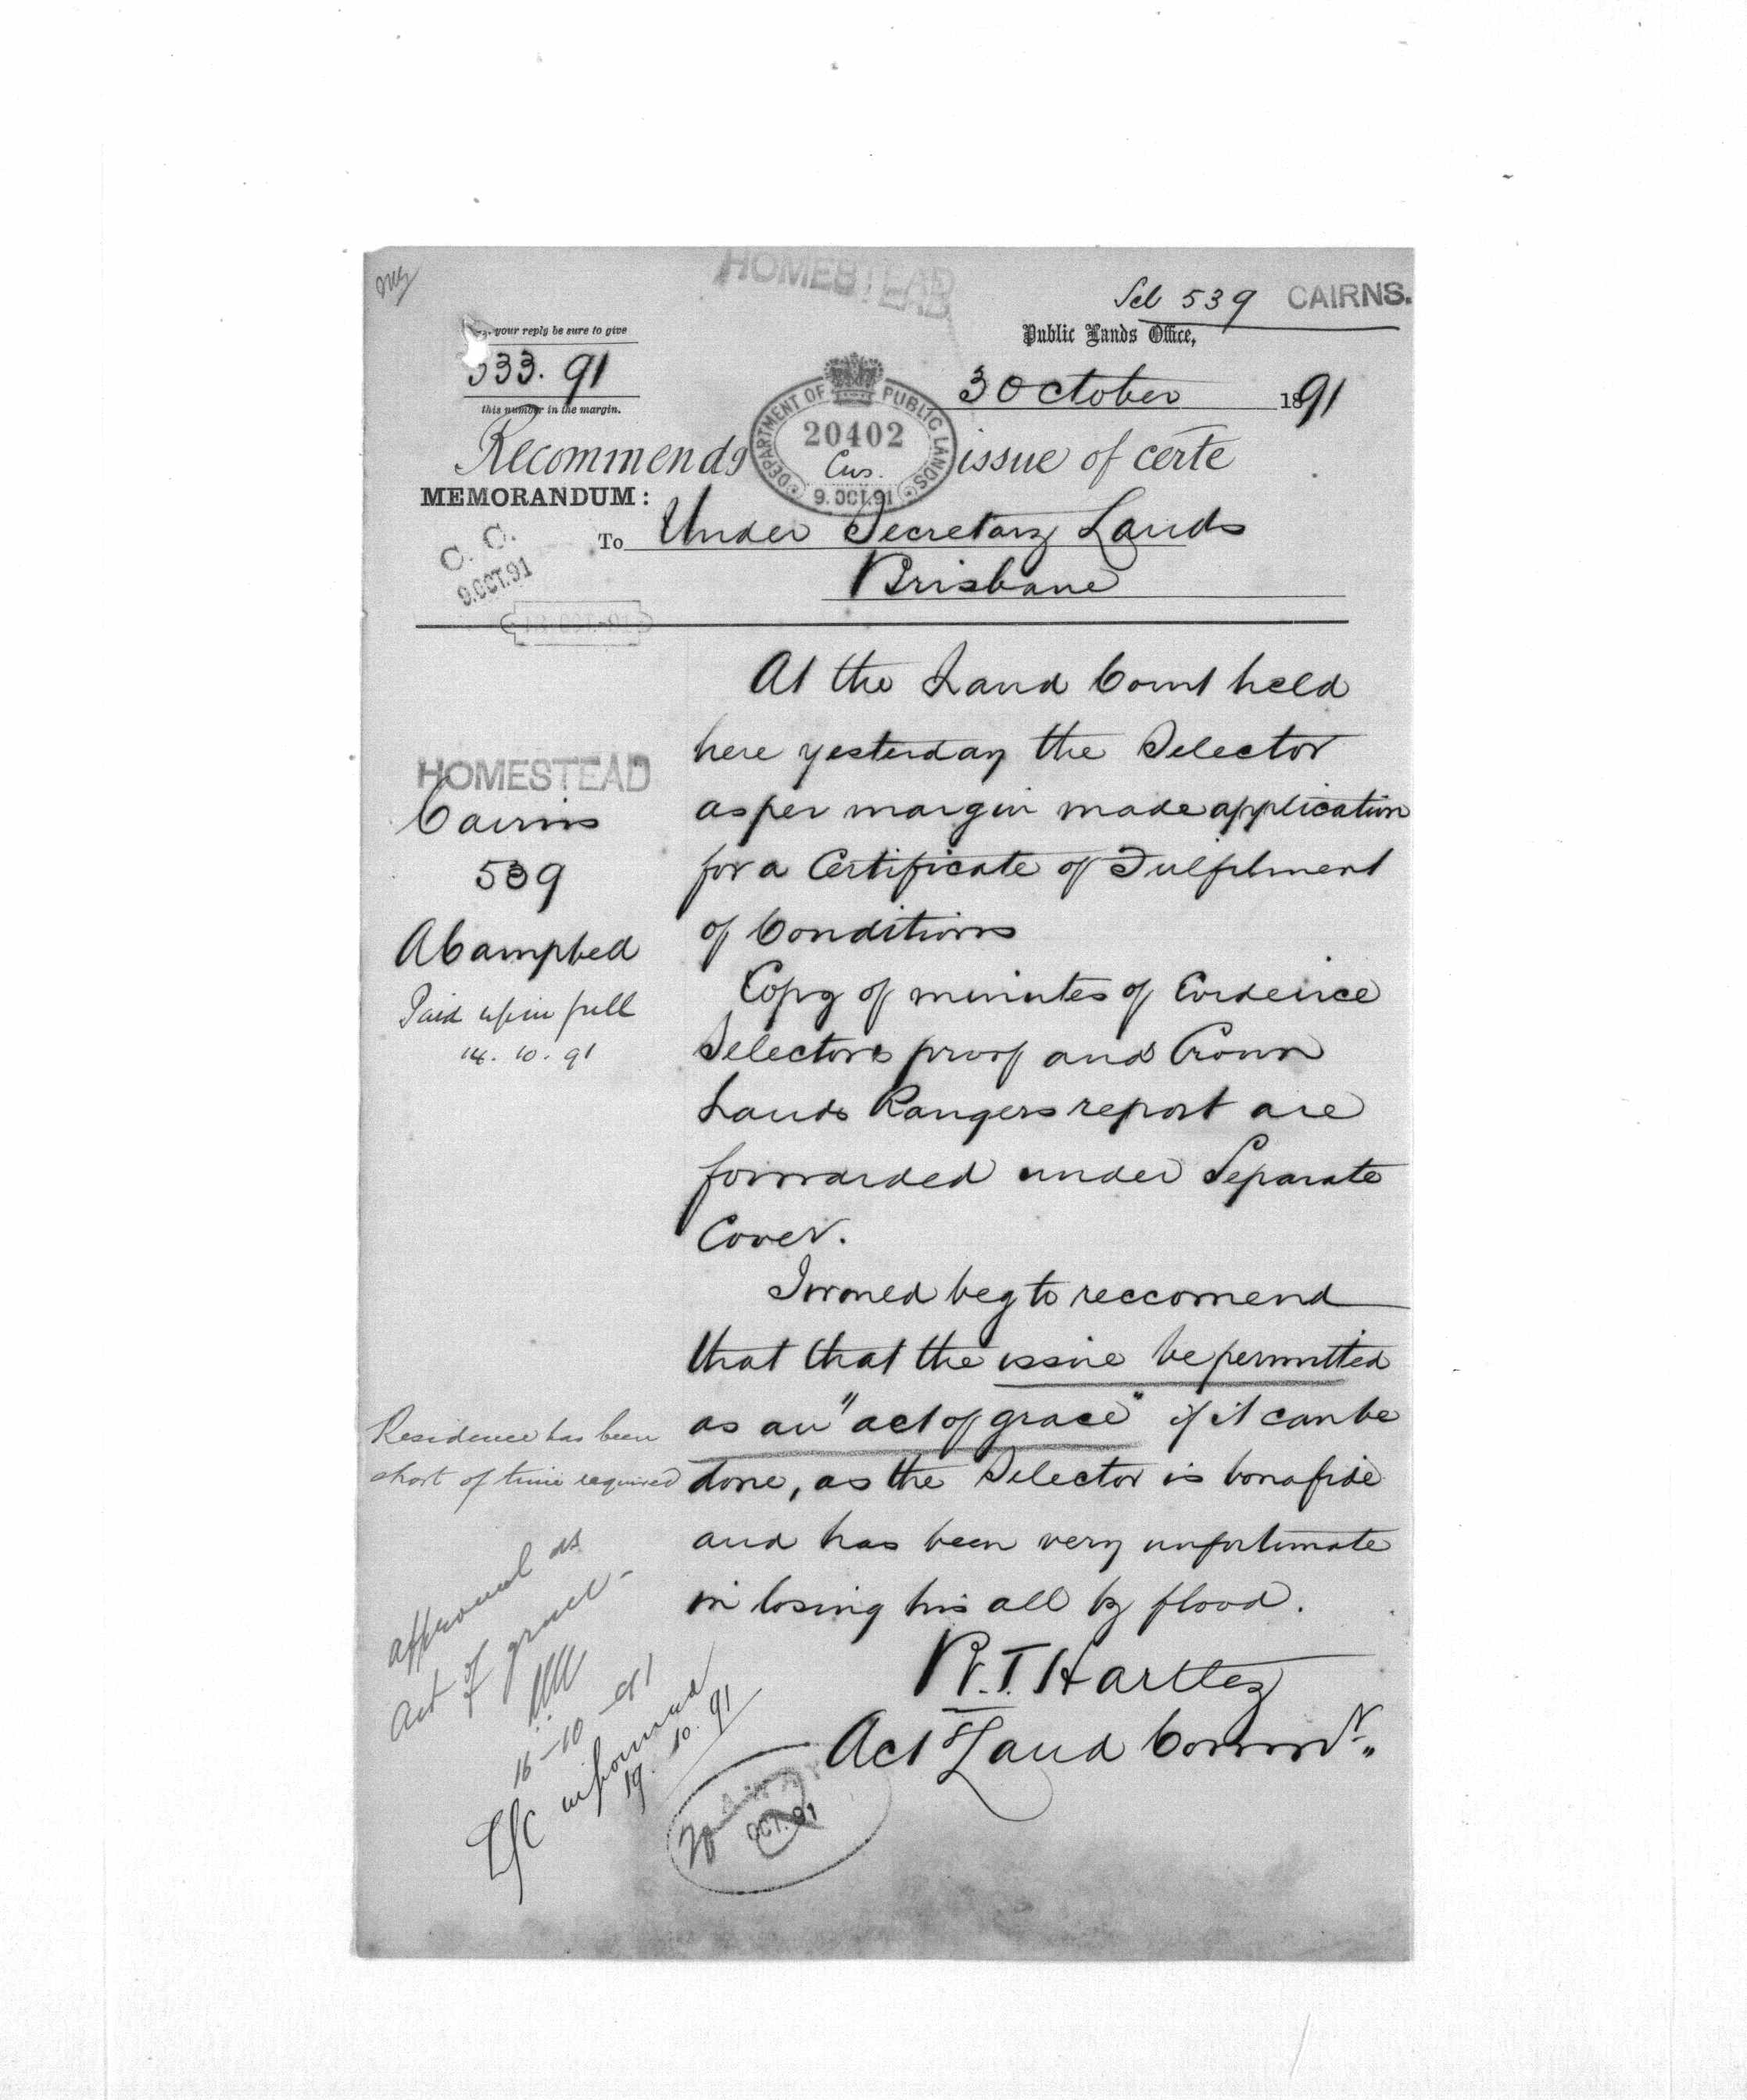 HOMESTEAD
Sel 539 CAIRNS.
your reply be sure to give
Public Lands Office,
333. 91
this number in the margin.
3 October 1891
DEPARTMENT OF PUBLIC LANDS
20402
Cns.
9. OCT. 91
Recommends issue of certe
MEMORANDUM:
To Under Secretary Lands
Brisbane
C. C.
9. OCT. 91
At the Land Court held
here yesterday the Selector
HOMESTEAD
Cairns
as per margin made application
539
for a Certificate of Fulfilment
A Campbell
of Conditions
Paid up in full
14. 10. 91
Copy of minutes of Evidence
Selectors proof and Crown
Lands Rangers report are
forwarded under Separate
Cover.
I would beg to reccomend
that that the issue be permitted
as an "act of grace" if it can be
Residence has been
short of time required
done, as the Selector is bonafide
and has been very unfortunate
in losing his all by flood.
approved as
Act of grace -
16-10-91
R.T. Hartley
Act g Land Commr.
LC informed
19. 10. 91
OCT. 91